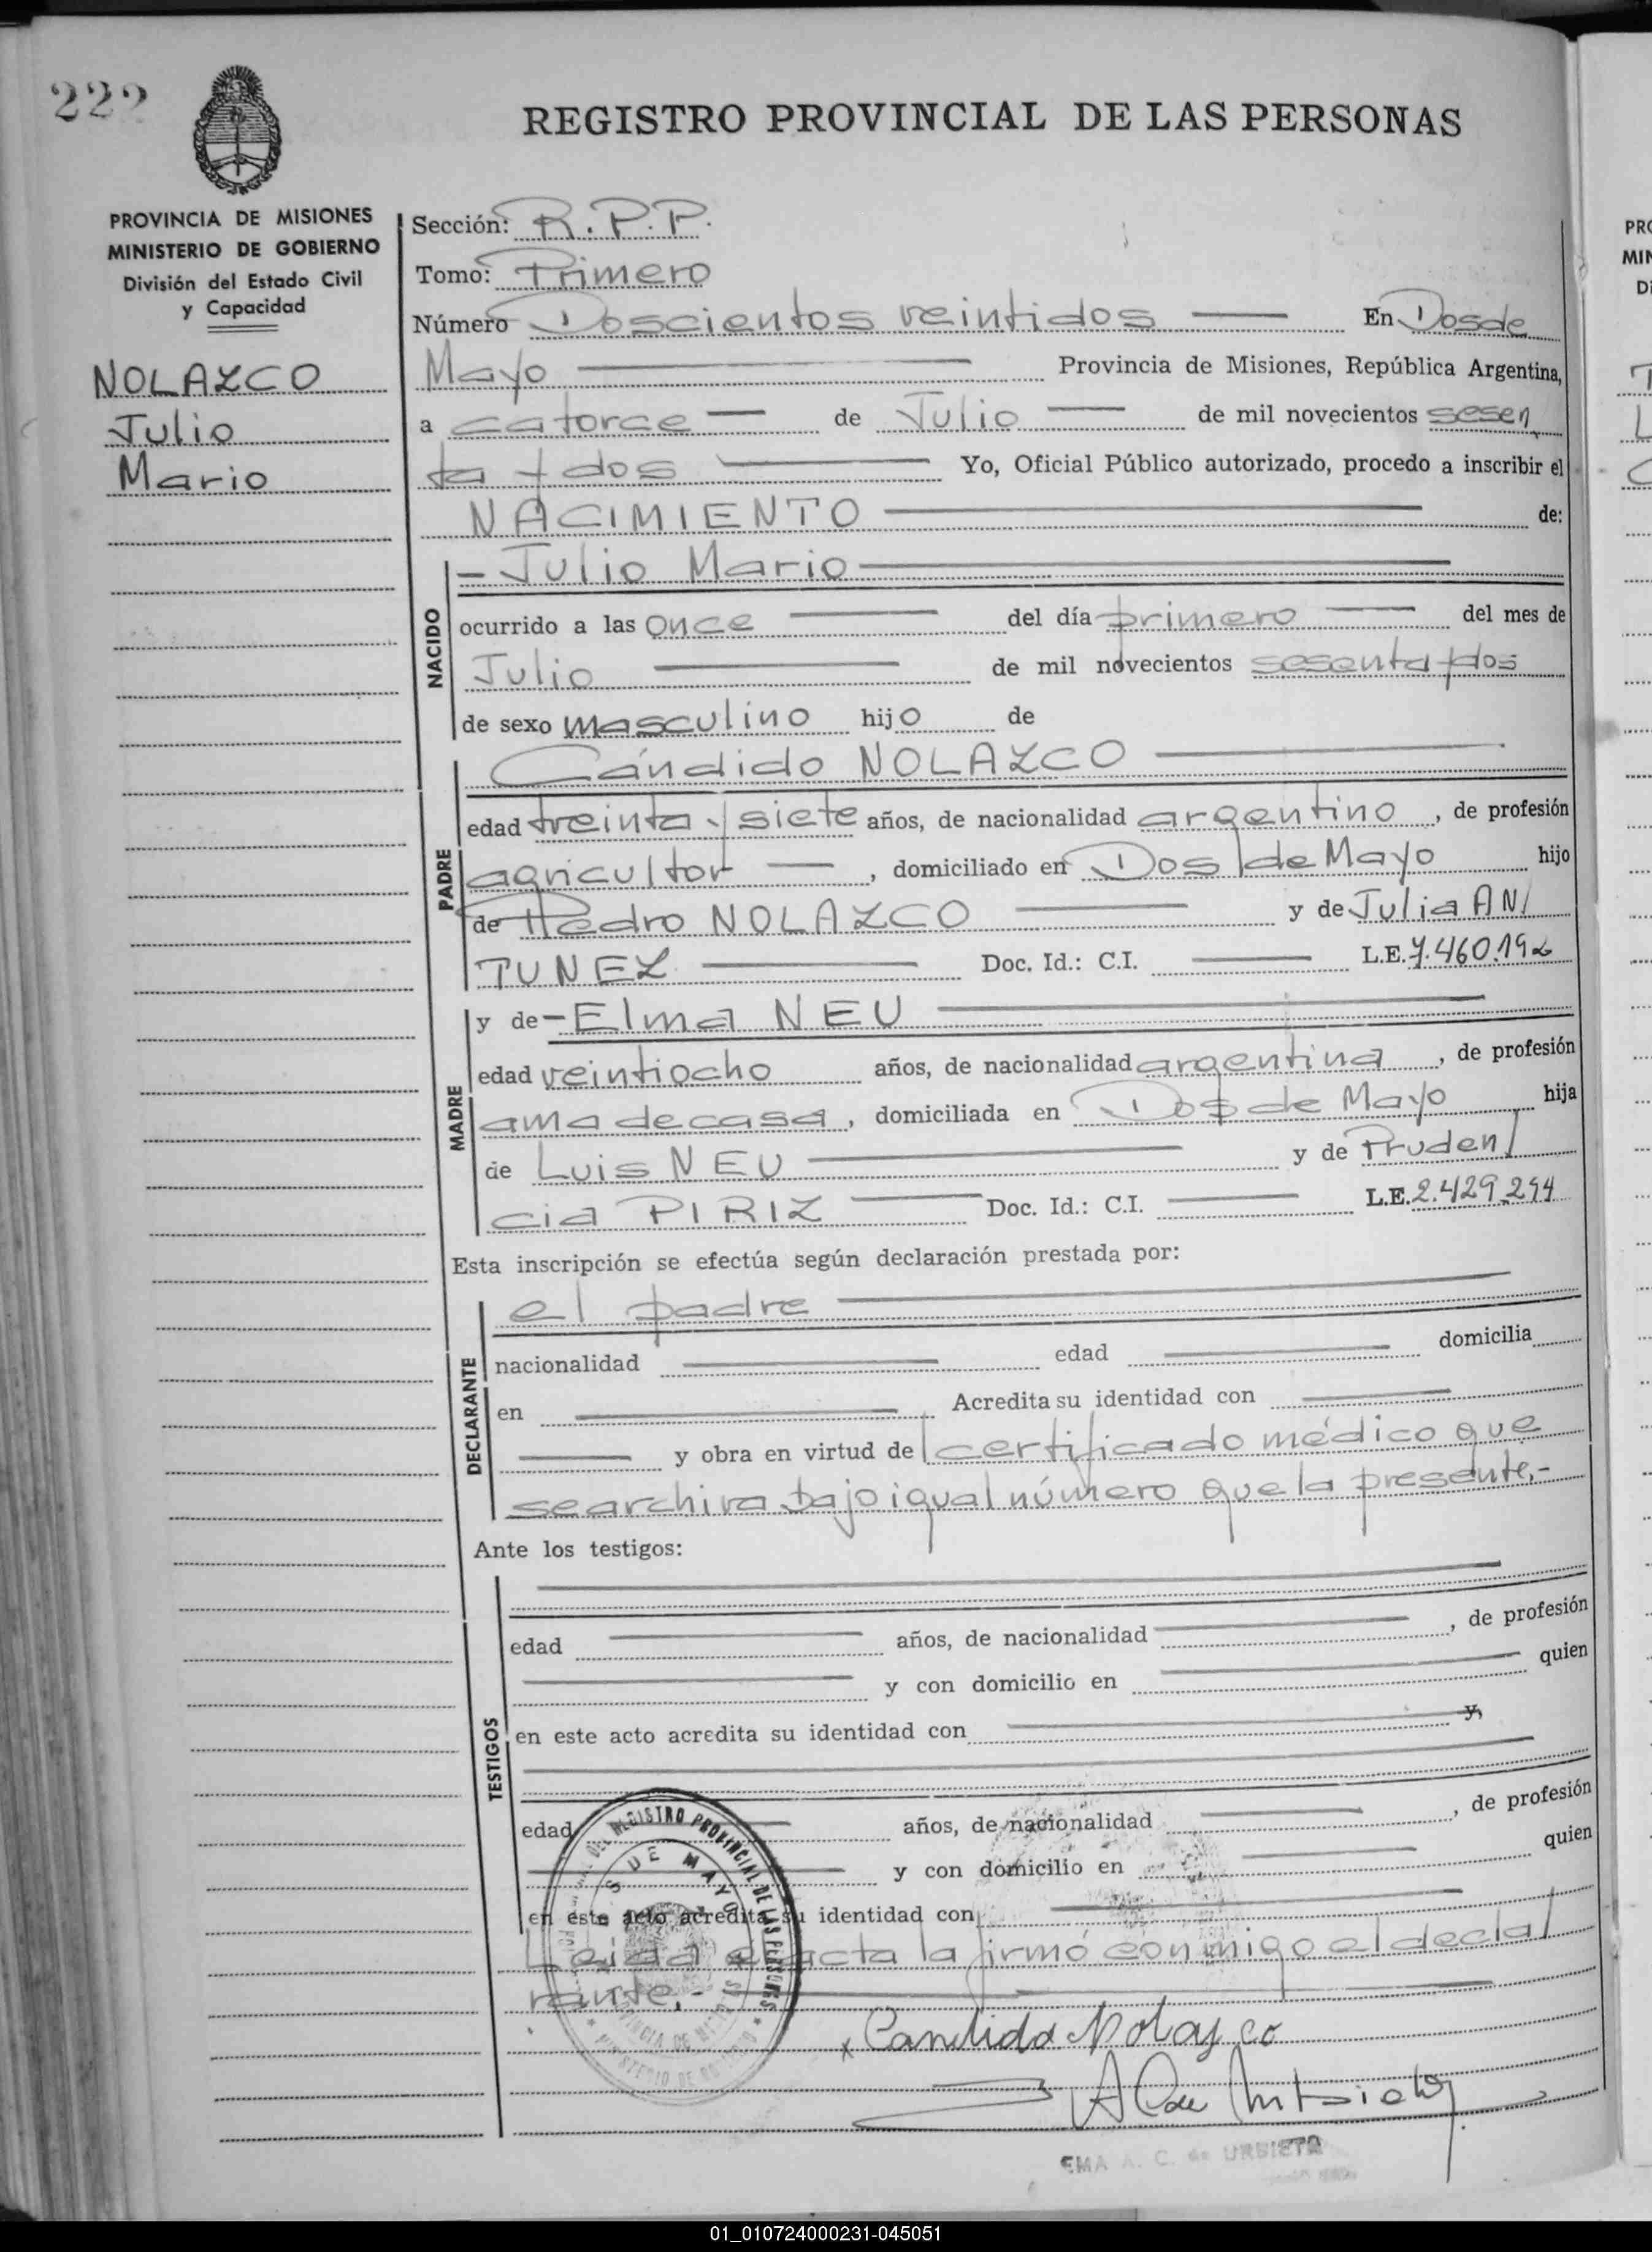 222
REGISTRO PROVINCIAL DE LAS PERSONAS
PROVINCIA DE MISIONES
MINISTERIO DE GOBIERNO
División del Estado Civil
y Capacidad
NOLAZCO
Julio
Mario
Sección: R.P.P.
Tomo: Primero
Número Doscientos veintidos En Dos de
Mayo Provincia de Misiones, República Argentina,
a catorce de Julio de mil novecientos sesen
ta y dos Yo, Oficial Público autorizado, procedo a inscribir el
NACIMIENTO de:
NACIDO
- Julio Mario
ocurrido a las once del día primero del mes de
Julio de mil novecientos sesenta y dos
de sexo masculino hijo de
PADRE
Cándido NOLAZCO
edad treinta y siete años, de nacionalidad argentino, de profesión
agricultor, domiciliado en Dos de Mayo hijo
de Pedro NOLAZCO y de Julia AN/
TUNEZ Doc. Id.: C.I. L.E. 7.460.192
MADRE
y de - Elma NEU
edad veintiocho años, de nacionalidad argentina, de profesión
ama de casa, domiciliada en Dos de Mayo hija
de Luis NEU y de Pruden/
cia PIRIZ Doc. Id.: C.I. L.E. 2.429.294
Esta inscripción se efectúa según declaración prestada por:
DECLARANTE
el padre
nacionalidad edad domicilia
en Acredita su identidad con
y obra en virtud de certificado médico que
se archiva bajo igual número que la presente.-
Ante los testigos:
TESTIGOS
edad años, de nacionalidad, de profesión
y con domicilio en quien
en este acto acredita su identidad con y,
edad años, de nacionalidad, de profesión
y con domicilio en quien
en este acto acredita su identidad con
Leida el acta la firmó conmigo el decla/
rante.-
DEL REGISTRO PROVINCIAL DE LAS PERSONAS
DOS DE MAYO
PROVINCIA DE MISIONES
MINISTERIO DE GOBIERNO
x Candido Nolazco
EMA A. C. de URBIETA
01_010724000231-045051